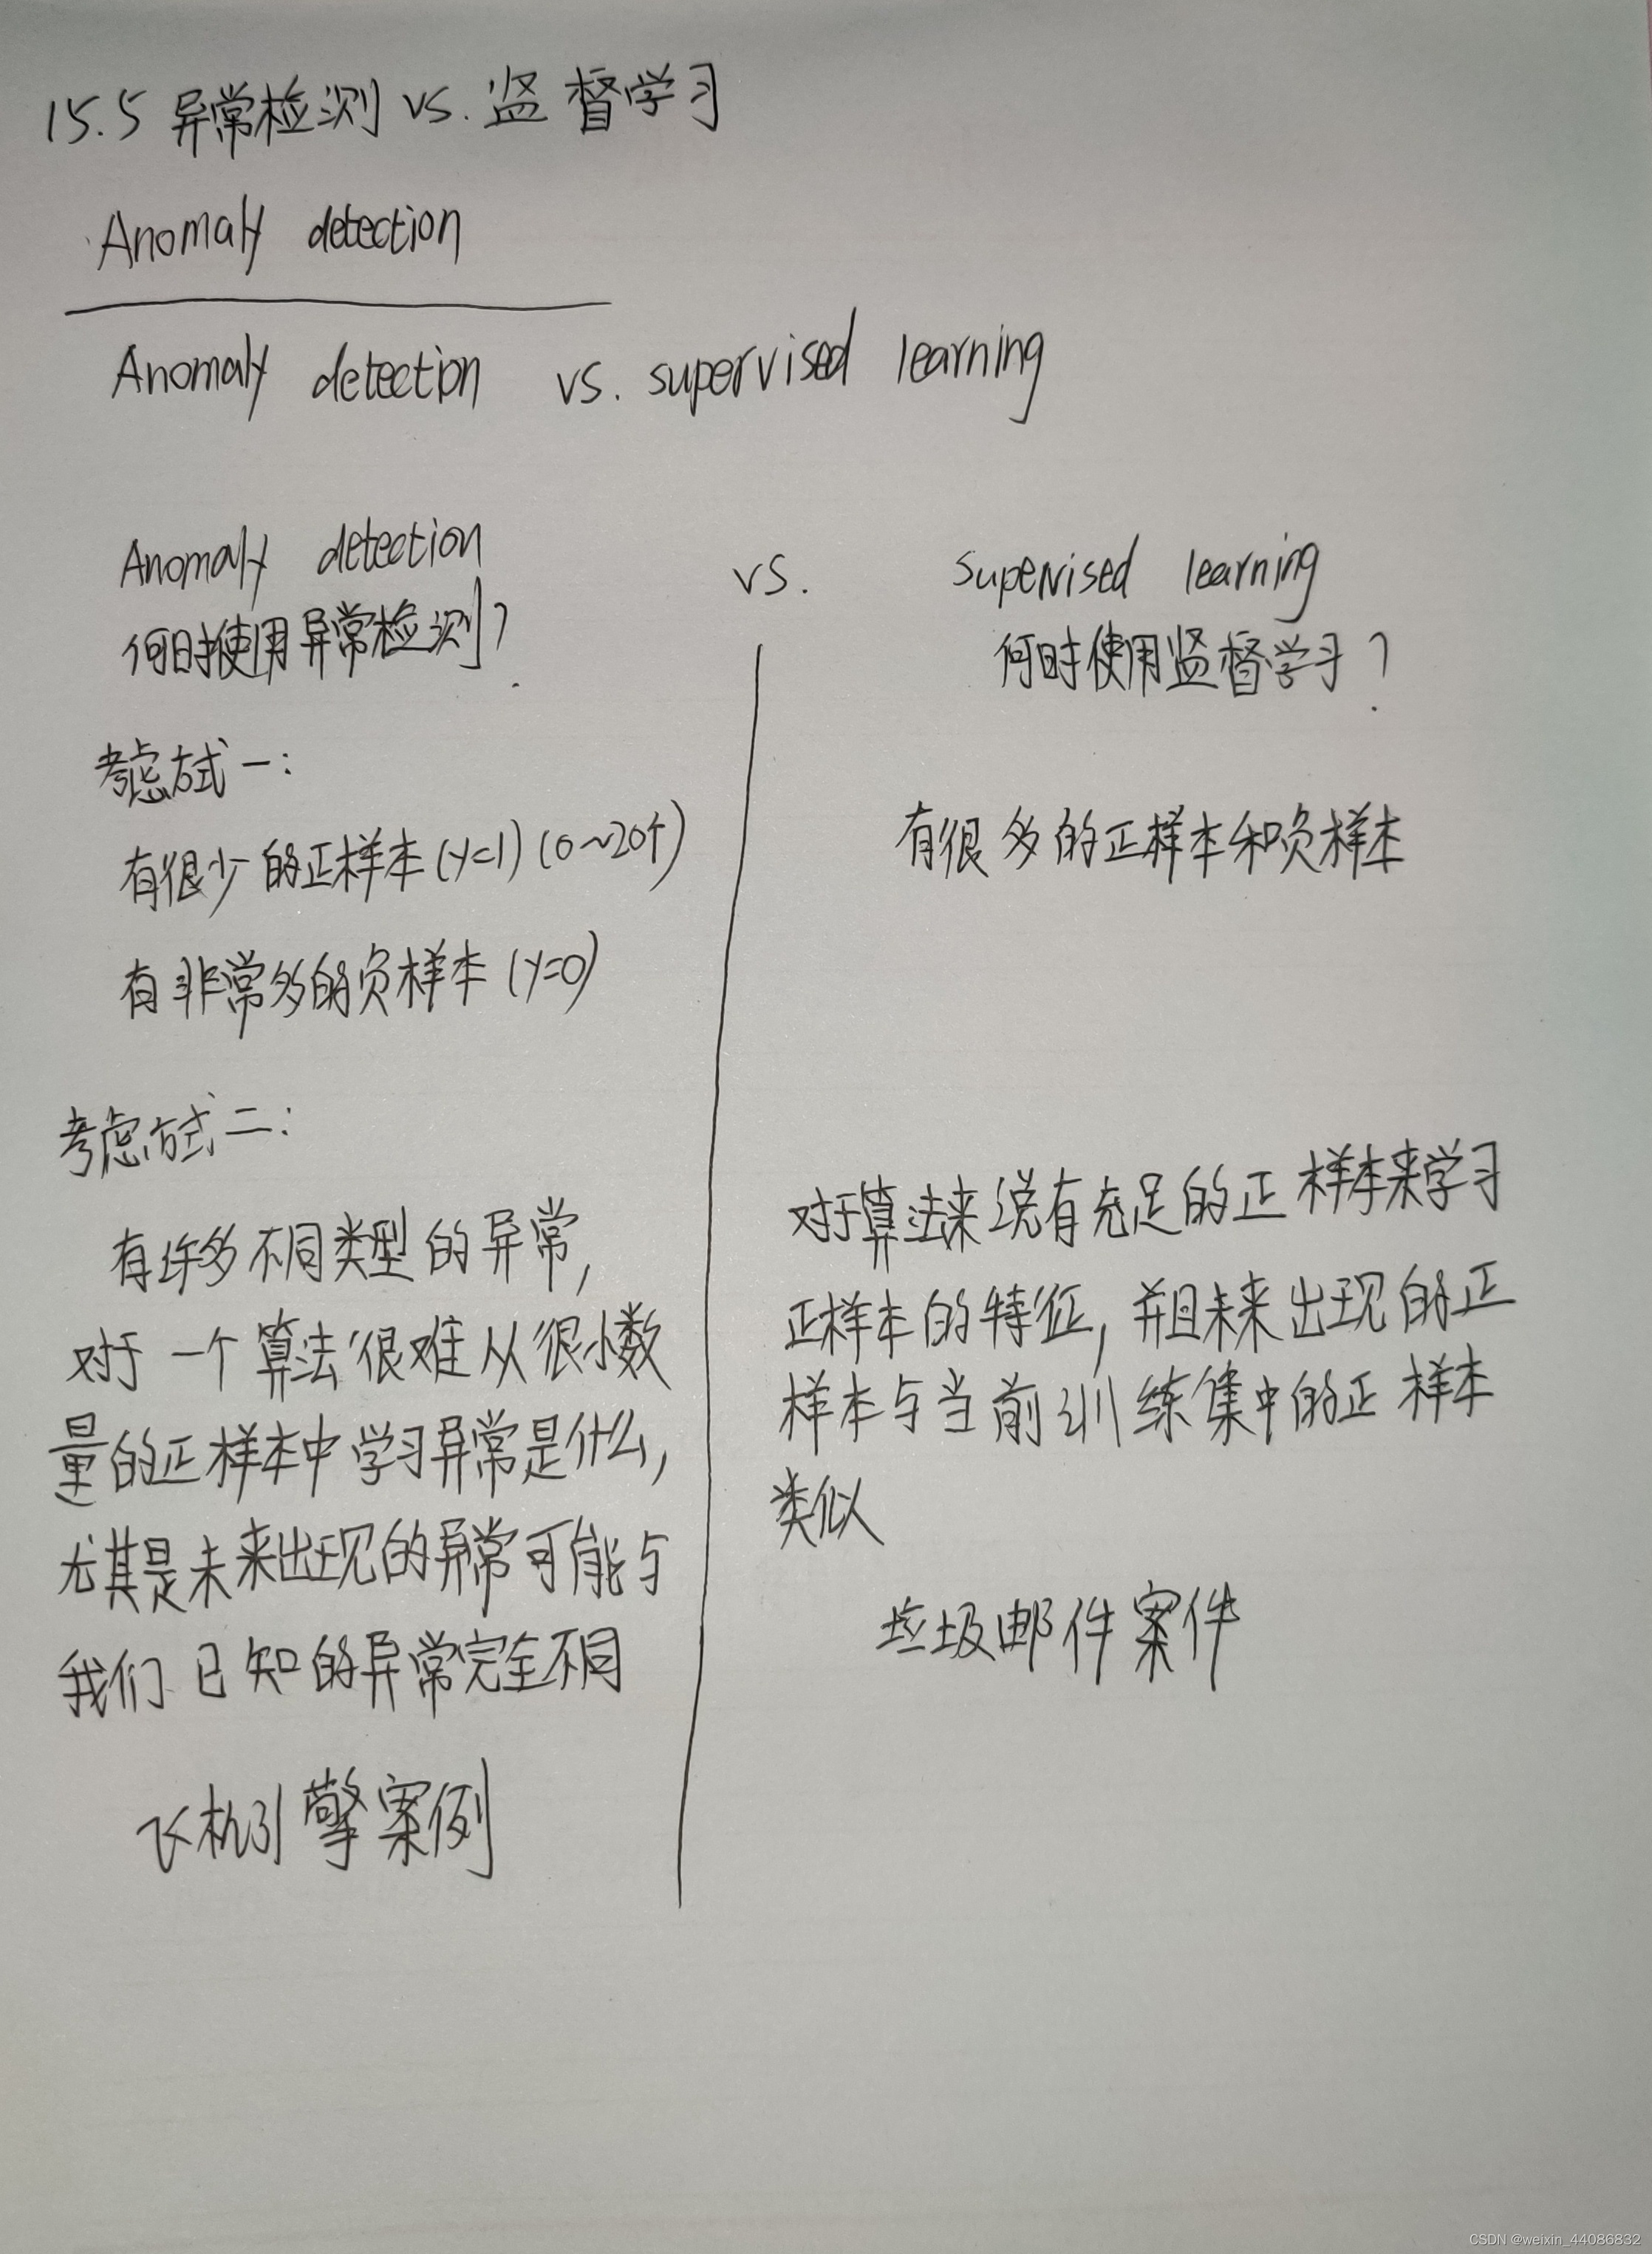 15.5 异常检测 vs. 监督学习
Anomaly detection
Anomaly detection vs. supervised learning
Anomaly detection vs. supervised learning
何时使用异常检测?
何时使用监督学习?
考虑方式一:
有很少的正样本(y=1)(0~20个)
有非常多的负样本(y=0)
有很多的正样本和负样本
考虑方式二:
有许多不同类型的异常,
对于一个算法很难从很小数
量的正样本中学习异常是什么,
尤其是未来出现的异常可能与
我们已知的异常完全不同
飞机引擎案例
对于算法来说有充足的正样本来学习
正样本的特征,并且未来出现的正
样本与当前训练集中的正样本
类似
垃圾邮件案件
CSDN @weixin_44086832